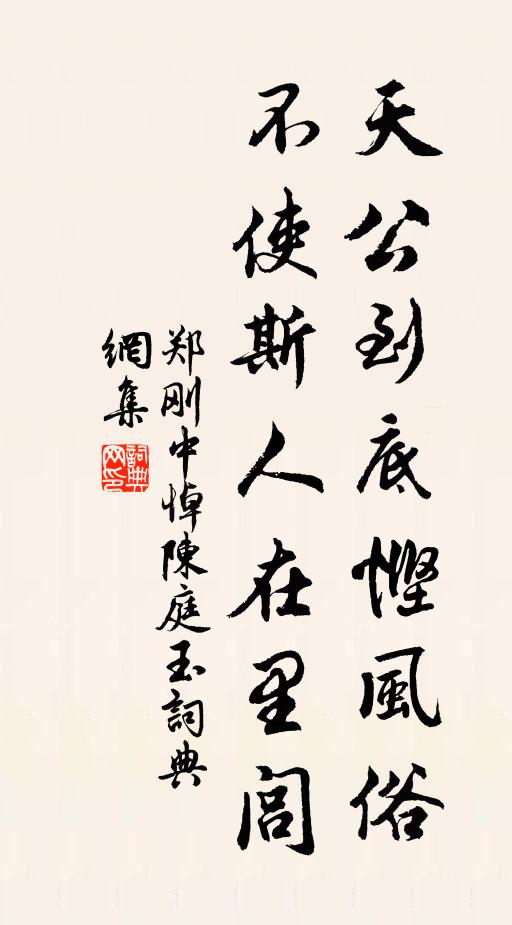 天公到底慳風俗
不使斯人在里閭
郑刚中悼陳庭玉詞典
網集
詞典网印